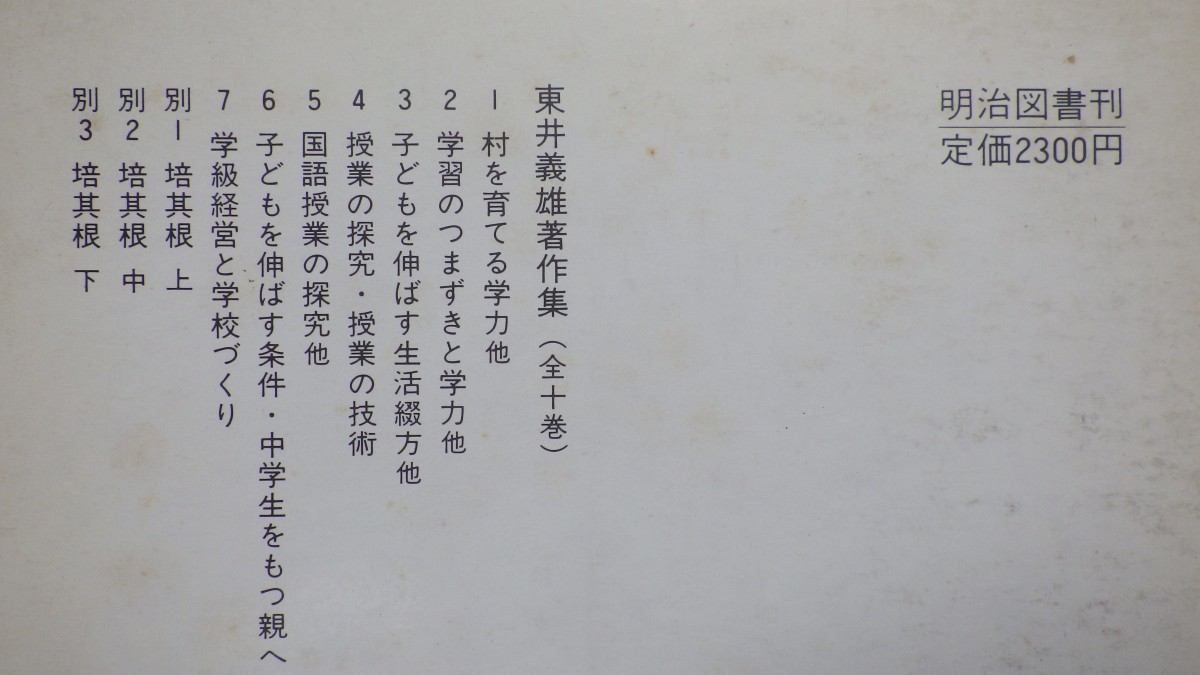 明治図書刊
定価2300円
東井義雄著作集（全十巻）
1 村を育てる学力他
2 学習のつまずきと学力他
3 子どもを伸ばす生活綴方他
4 授業の探究・授業の技術
5 国語授業の探究他
6 子どもを伸ばす条件・中学生をもつ親へ
7 学級経営と学校づくり
別1 培其根 上
別2 培其根 中
別3 培其根 下